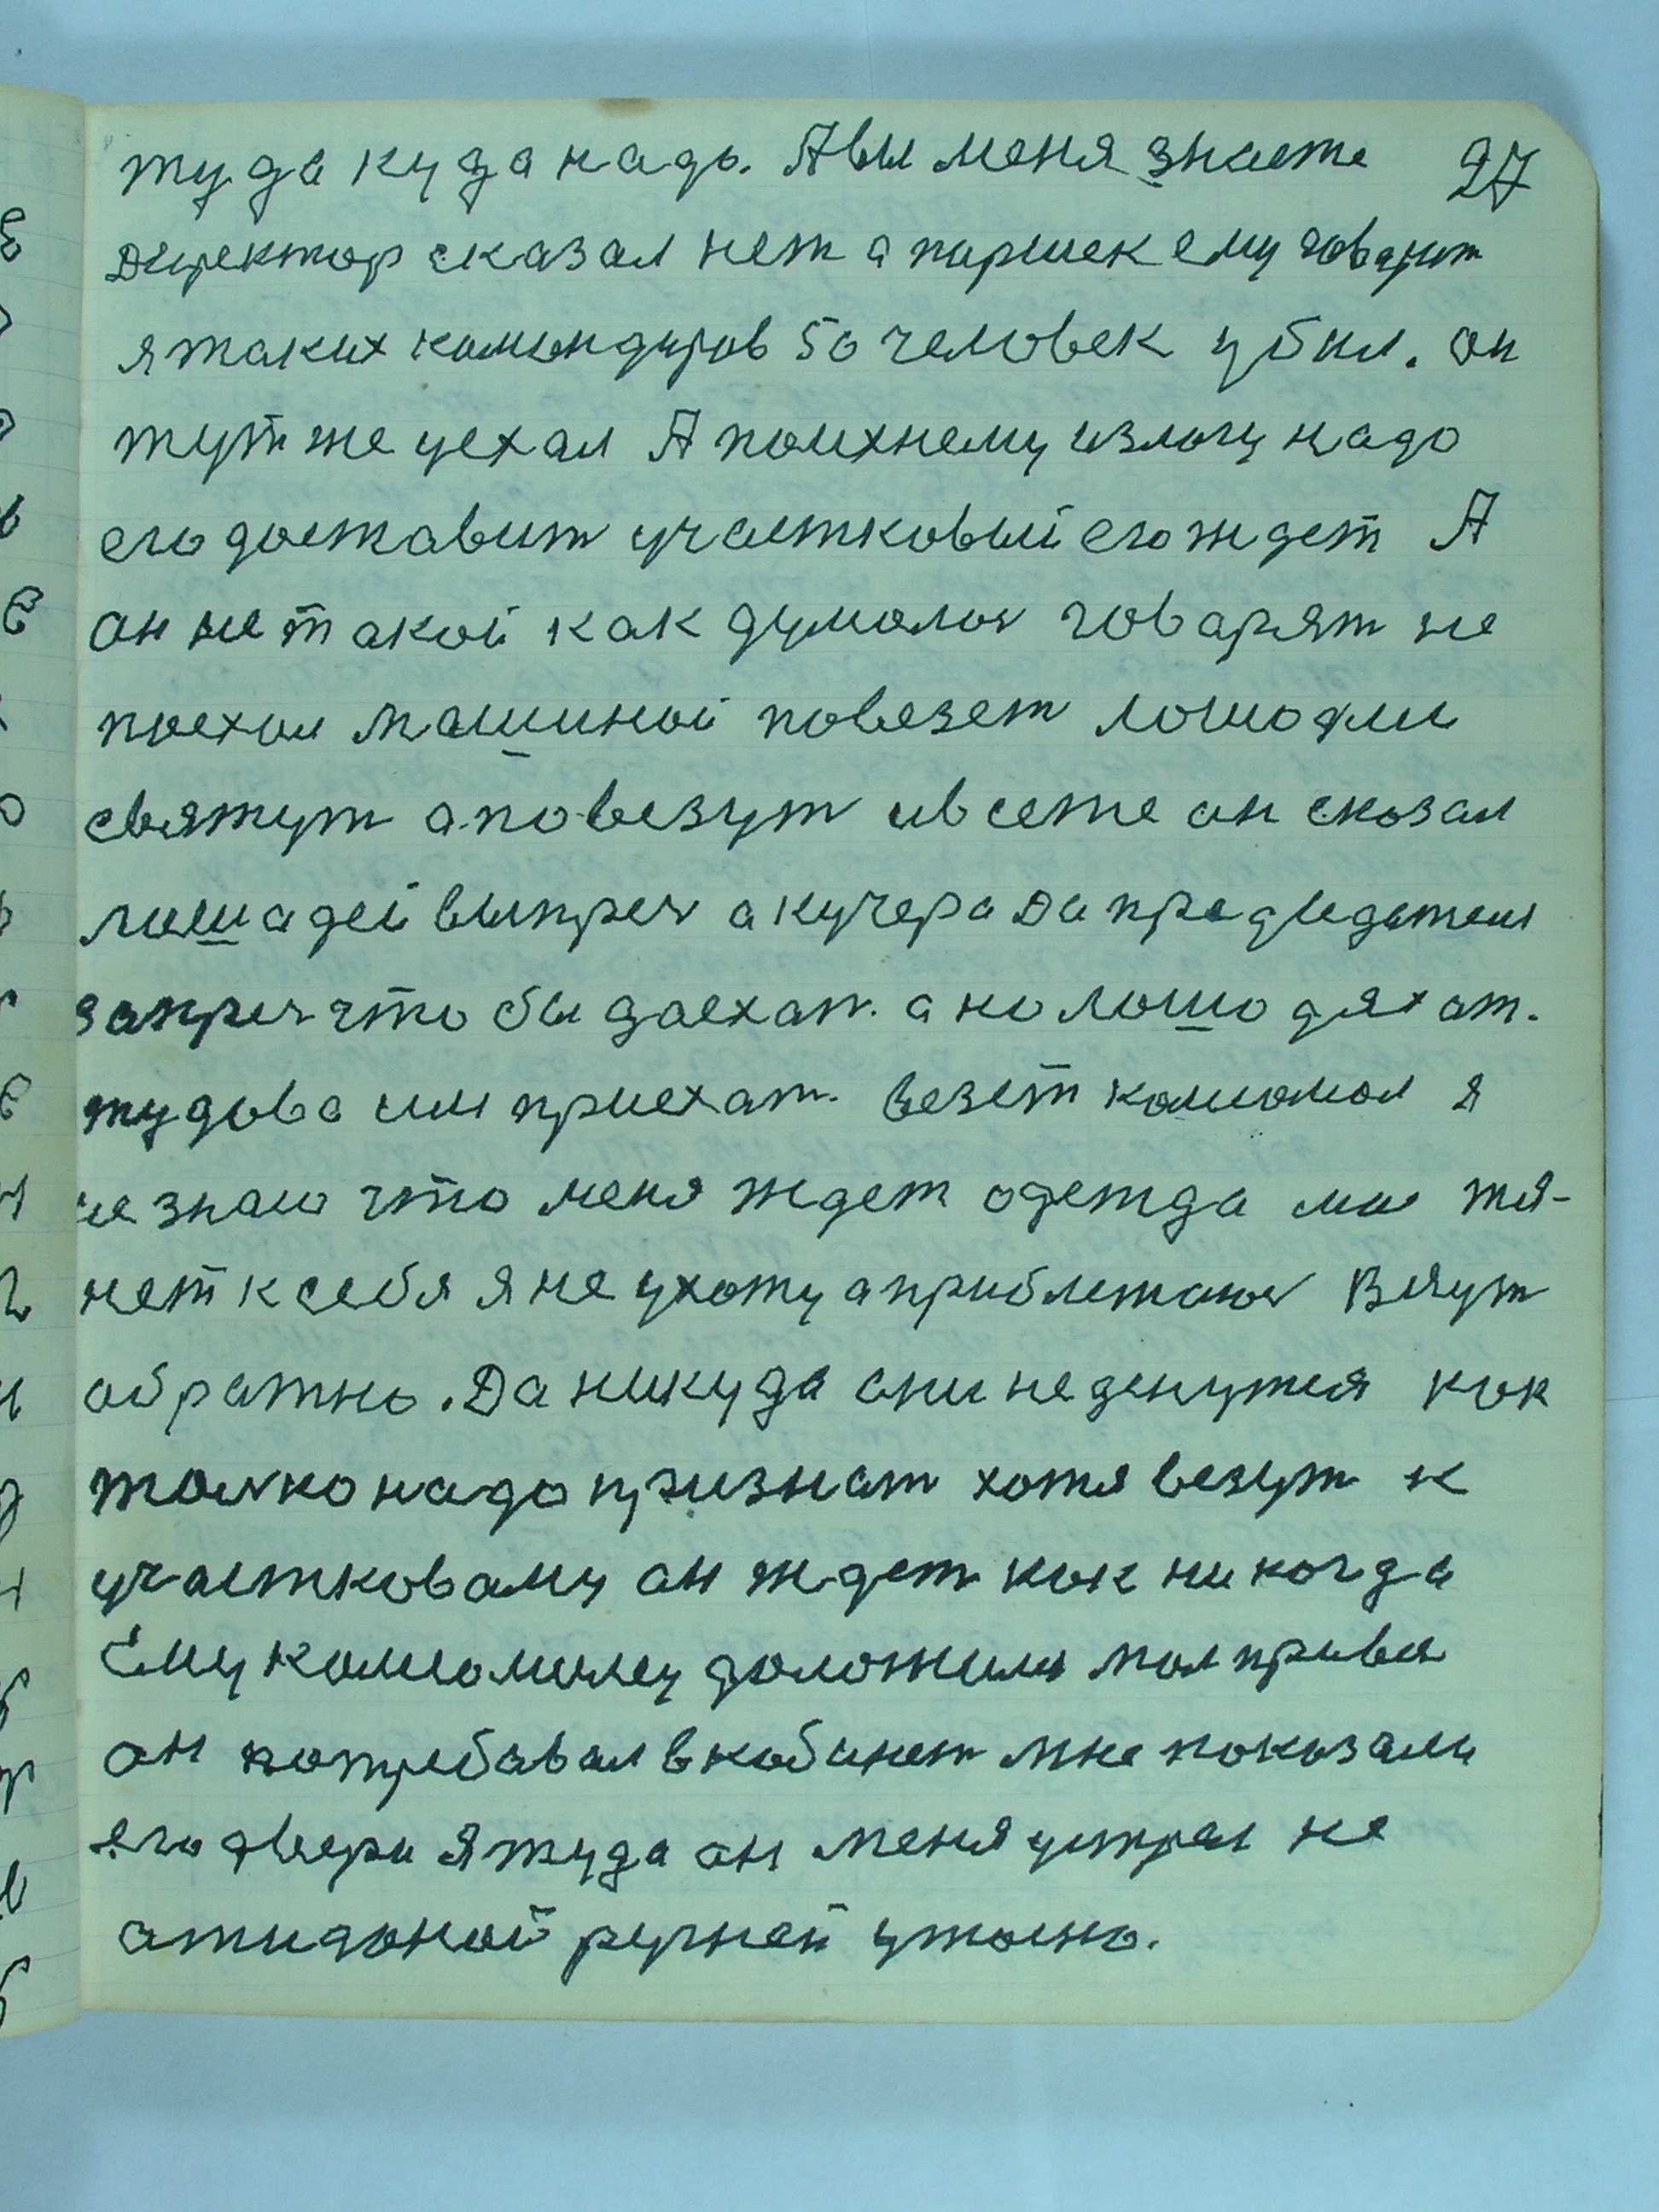 туда куда надо. А вы меня знаете 27
Директор сказал нет а паршек ему говарит
я таких командиров 50 человек убил. он
тут же уехал А поихнему излогу надо
его доставит участковый его ждет А
он не такой как думалос говарят не
поехал машиной повезет лошодми
свяжут а повезут ивсеже он сказал
лошадей выпреч а кучера Да предцедателя
запреч что бы доехат. а на лошодях ат.
тудова им приехат. везет комсомол я
не знаю что меня ждет одежда ли тя-
нет к себя я не ухожу а приблежаюс Везут
обратно. Да никуда они неденутся как
толко надо признат хотя везут к
участковаму он ждет как никогда
Ему комсомолец доложил мол привез
он потребавал в кобинет мне показали
его двери я туда он меня устрел не
атидоной ручкей